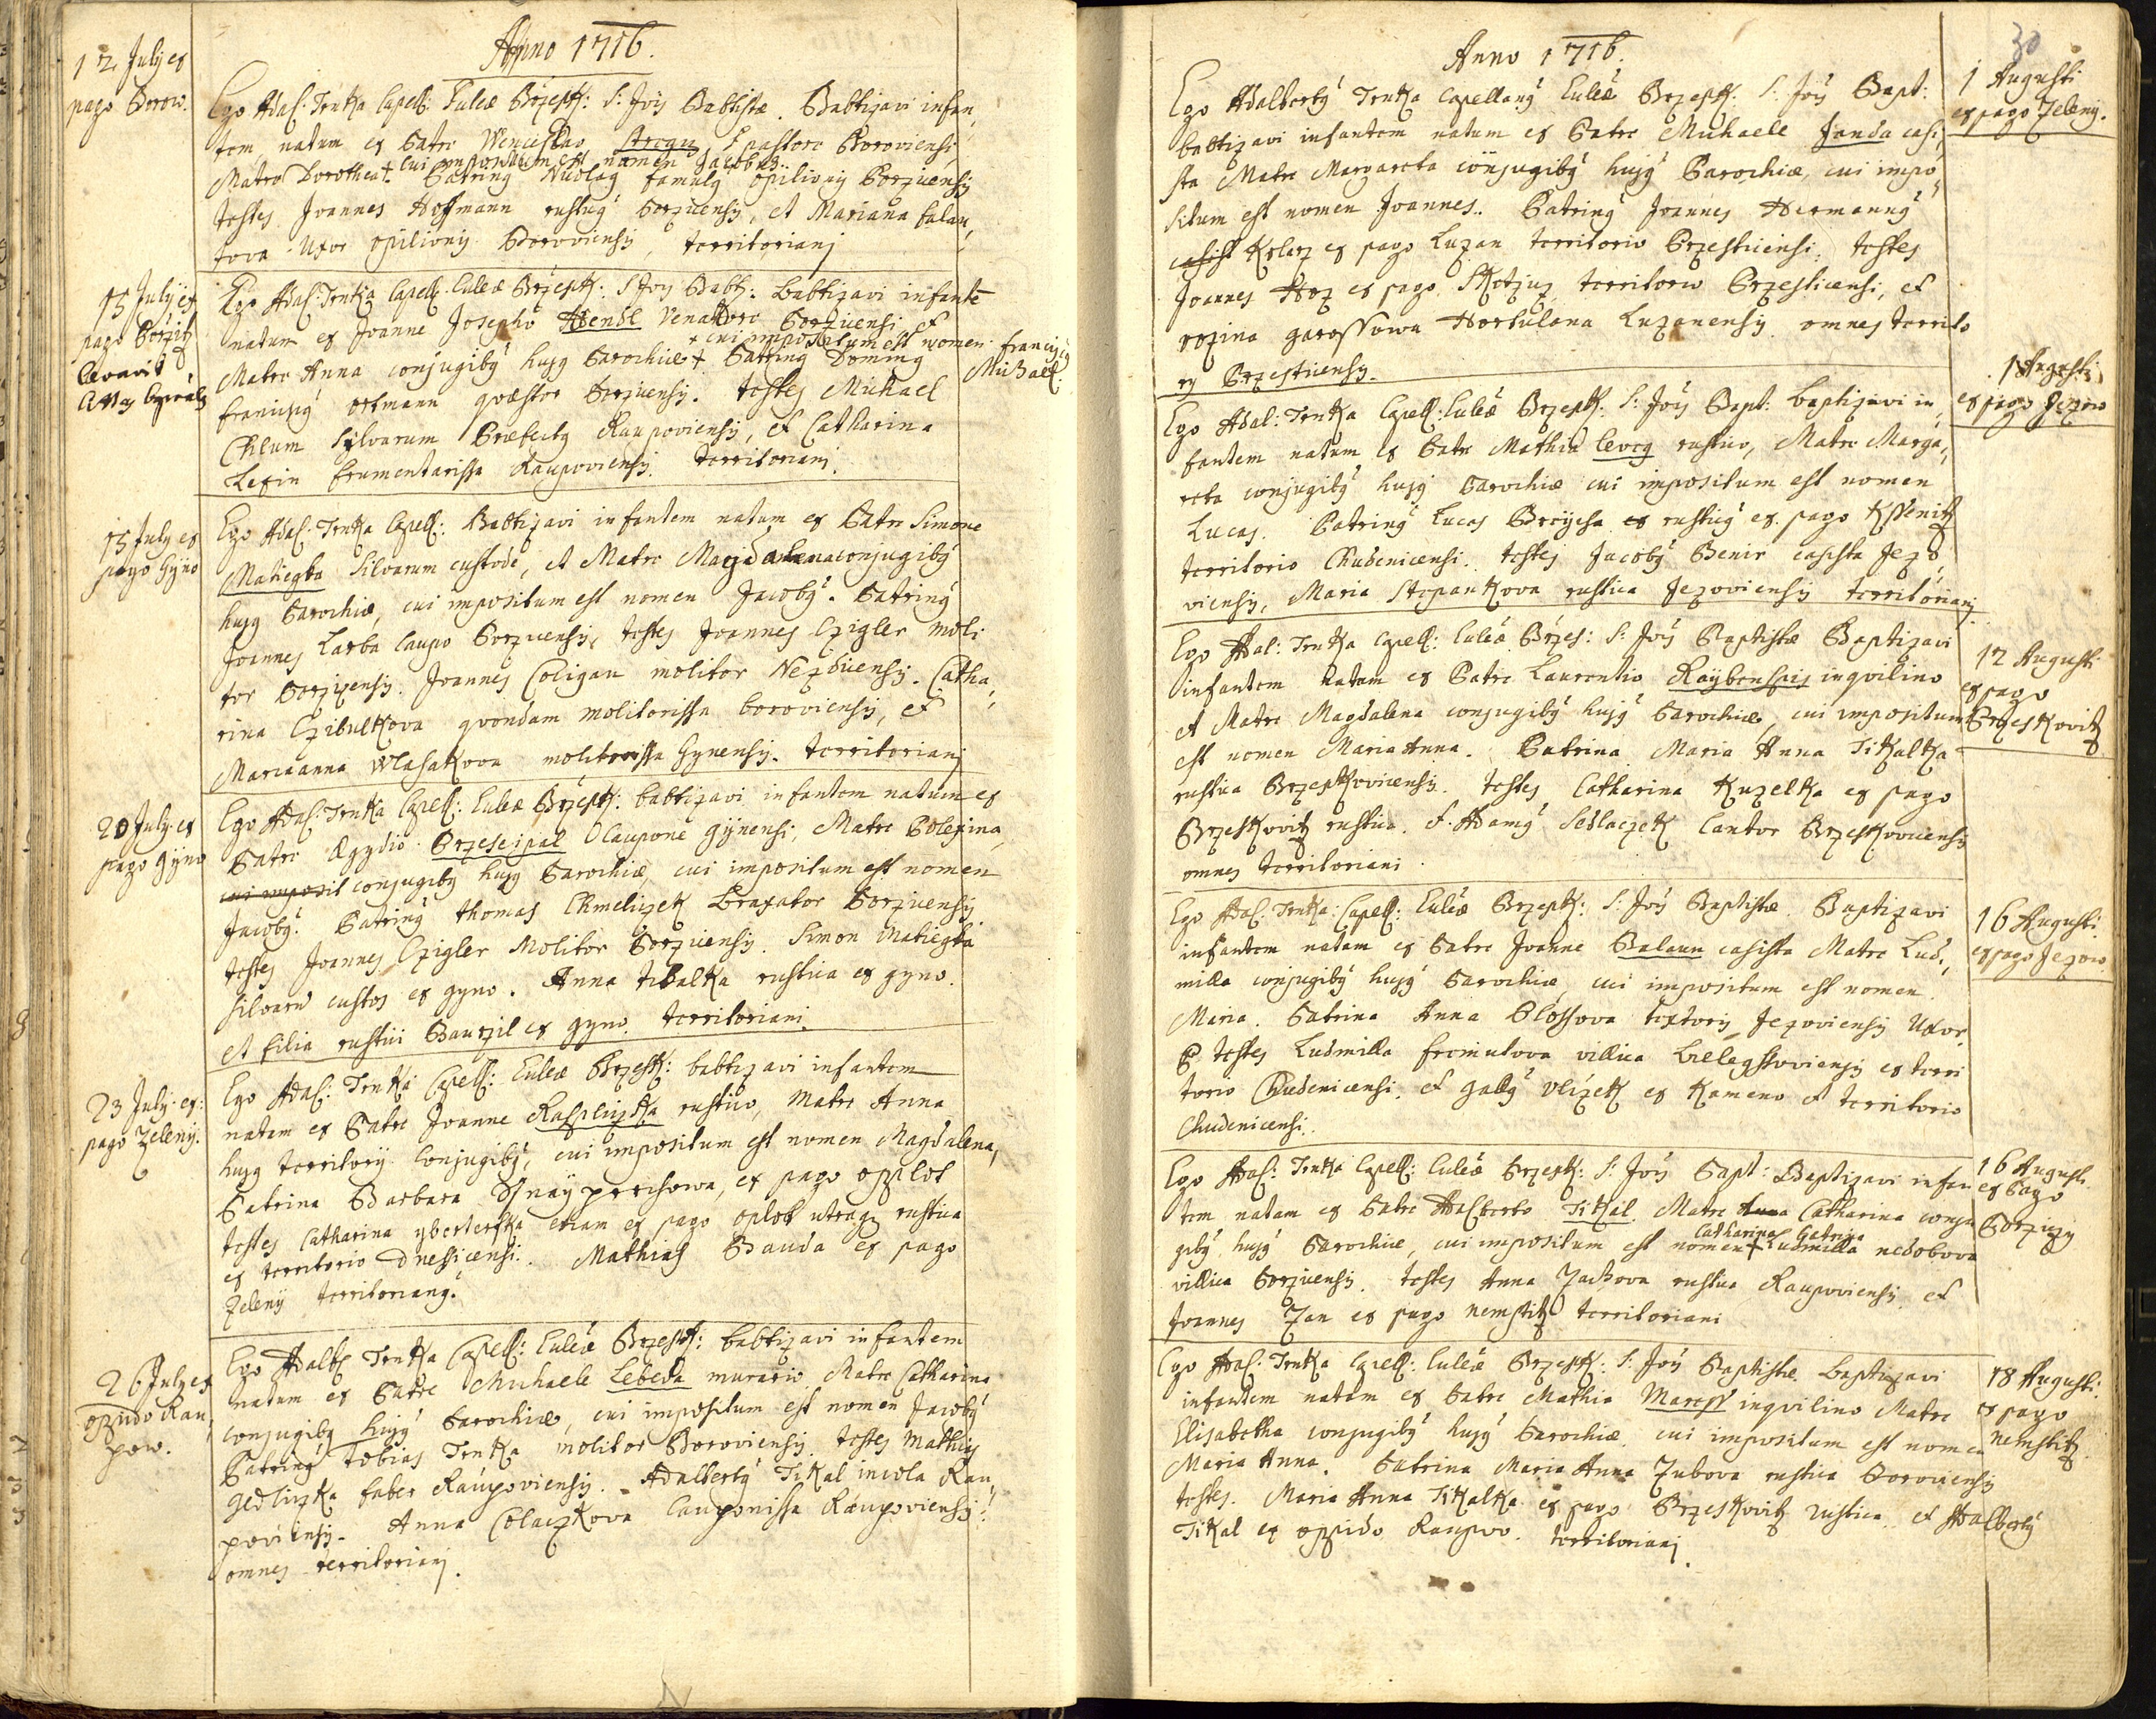 Anno 1716.
12 July ex
pago Borow.
Ego Adal: Trnka Capell: Eulèæ Brzesk: S: Jois Babtistæ. Babtizavi infan,
tem natum ex Patre Wenceslao Stregu Epastore Boroviensi
Matre Dorothea + cui impositum est nomen Jacobus.
Patrinus famulus opilionis Borzicensis
testes Joannes Hoffmann rusticus Borzicensis, et Mariana balau,
tova Uxor opilionis Boroviensis, territoriani
15 July ex
pago Borzitz
levavit
Ego Adal: Trnka Capell: Euleæ Brzesk: S Jois Babt: babtizavi infantē
natum ex Joanne Josepho Hendl Venatore Borzicensi et
+ cui impositum est nomen franciscus
Michael.
Matre Anna conjugibus hujus Parochiæ + Patrinus Dominus
franciscus ortmann quæstor Borzicensis. testes Michael
Chlum Sylvarum Præfectus Raupoviensis, et Catharina
Lexin frumentarissa Raupoviensis. territoriani.
15 July ex
pago Gyno
Ego Adal: Trnka Capell: Babtizavi infantem natum ex Patre Simone
Matiegka Silvarum custode, et Matre Magdalena conjugibus
hujus Parochiæ, cui impositum est nomen Jacobus. Patrinus
Joannes Larba Caupo Borzicensis, testes Joannes Czigler moli
tor Borzicensis. Joannes Coligan molitor Nezdicensis. Catha,
rina Czibulkova quondam molitorissa boroviensis, et
Mariaanna Wlasakova molitorissa Gynensis. territoriani
20 July ex
pago Gyno
Ego Adal: Trnka Capell: Euleæ Brzesk: babtizavi infantem natum ex
Patre Ægydio Brzescipal Caupone gijnensi, Matre Polexina,
cui imposit conjugibus hujus Parochiæ, cui impositum est nomen
Jacobus. Patrinus thomas Chmeliczek braxator Borzicensis
testes Joannes Czigler Molitor Borzicensis. Simon Matiegka
silvarū custos ex gyno. Anna tikalka rustica ex gyno.
et filia rustici Baurzil ex gyno. territoriani.
23 July ex:
pago Zeleny.
Ego Adal: Trnka Capell: Euleæ Brzesk: babtizavi infantem
natam ex Patre Joanne Raspliczka rustico, Matre Anna
hujus territorij conjugibus, cui impositum est nomen Magdalena,
Patrina Barbara Sснayprchowa, ex pago opplot
testes Catharina yberlerska etiam ex pago oplot utraque rustica
ex territorio Dnessicensi. Mathias Bauda ex pago
Zelenij territorianus.
26 July ex
oppido Rau,
pow.
Ego Adalb: Trnka Capell: Euleæ Brzesk: babtizavi infantem
natum ex Patre Michaele Lebeda murario Matre Catharina
conjugibus hujus Parochiæ, cui impositum est nomen Jacobus
Patrinus tobias Trnka molitor Boroviensis. testes Mathias
Jedliczka faber Raupoviensis. Adalbertus Tikal incola Rau,
poviensis. Anna Colaczkova Cauponissa Raupoviensis:
omnes territoriani.
30
Anno 1716.
1 Augusti
ex pago Zeleny.
Ego Adalbertus Trnka Capellanus Euleæ Brzesk: S: Jois Bapt:
babtizavi infantem natum ex Patre Michaele Janda casi,
sta Matre Margareta conjugibus hujus Parochiæ, cui impo,
situm est nomen Joannes. Patrinus Joannes Hermannus
casist Kolarz ex pago Luzan territorio Przesticensi. testes
Joannes Horz ex pago Skotziz territorio Przesticensi, et
rozina garossowa Hortulana Luzanensis. omnes territo
rij Przesticensis.
1 Augusti
ex pago Jezow
Ego Adal: Trnka Capell: Euleæ Brzesk: S: Jois Bapt: baptizavi in,
fantem natum ex Patre Mathia Cevcg rustico, Matre Marga,
reta conjugibus hujus Parochiæ cui impositum est nomen
Lucas. Patrinus Lucas Brcycha ex rusticus ex pago Kssenitz
territorio Chudenicensi. testes Jacobus Benir casista Jezo,
viensis, Maria Stepankova rustica Jezoviensis territoriani
12 Augusti
ex pago
Brzeskovitz
Ego Adal: Trnka Capell: Euleæ Brzes: S: Jois Baptistæ Baptizavi
infantem natam ex Patre Laurentio Raybenspis inquilino
et Matre Magdalena conjugibus hujus Parochiæ, cui impositum
est nomen Maria Anna. Patrina Maria Anna Tikalka
rustica Brzeskovicensis. testes Catharina Kuzelka ex pago
Brzeskovitz rustica. et Adamus Sedlaczek Cantor Brzeskovicensis
omnes territoriani.
16 Augusti
ex pago Jezow
Ego Adal: Trnka Capell: Euleæ Brzesk: S: Jois Baptistæ. Baptizavi
infantem natam ex Patre Joanne Balaun casista Matre Lud,
milla conjugibus hujus Parochiæ cui impositum est nomen
Maria. Patrina Anna Blossova textoris Jezoviensis Uxor,
testes Ludmilla fremutova villica ex terri
torio Chudenicensi. et gallus Vlczek ex Kameno et territorio
Chudenicensi.
16 Augusti
ex Pago
Borziczy
Ego Adal: Trnka Capell: Euleæ Brzesk: S: Jois Bapt: Baptizavi infan
tem natam ex Patre Adalberto Tikal. Matre Anna Catharina conju
Catharina Patrina
gibus hujus Parochiæ, cui impositum est nomen + Ludmilla nedobova
villica Borzicensis. testes Anna Zachova rustica Raupoviensis et
Joannes Zan ex pago nemstitz territoriani
18 Augusti.
ex pago
Nemstitz.
Ego Adal: Trnka Capell: Euleæ Brzesk: S: Jois Baptistæ baptizavi
infantem natam ex Patre Mathia Maress inquilino Matre
Elisabetha conjugibus hujus Parochiæ. cui impositum est nomen
Maria Anna. Patrina Maria Anna Zubova rustica Boroviensis
testes. Maria Anna Tikalka ex pago Brzeskovitz rustica. et Adalbertus
Tikal ex oppido Raupow. territoriani.